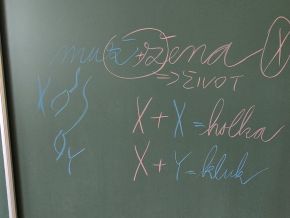 muž + žena X
=> ŽIVOT
X
X + X = holka
Y
X + Y = kluk